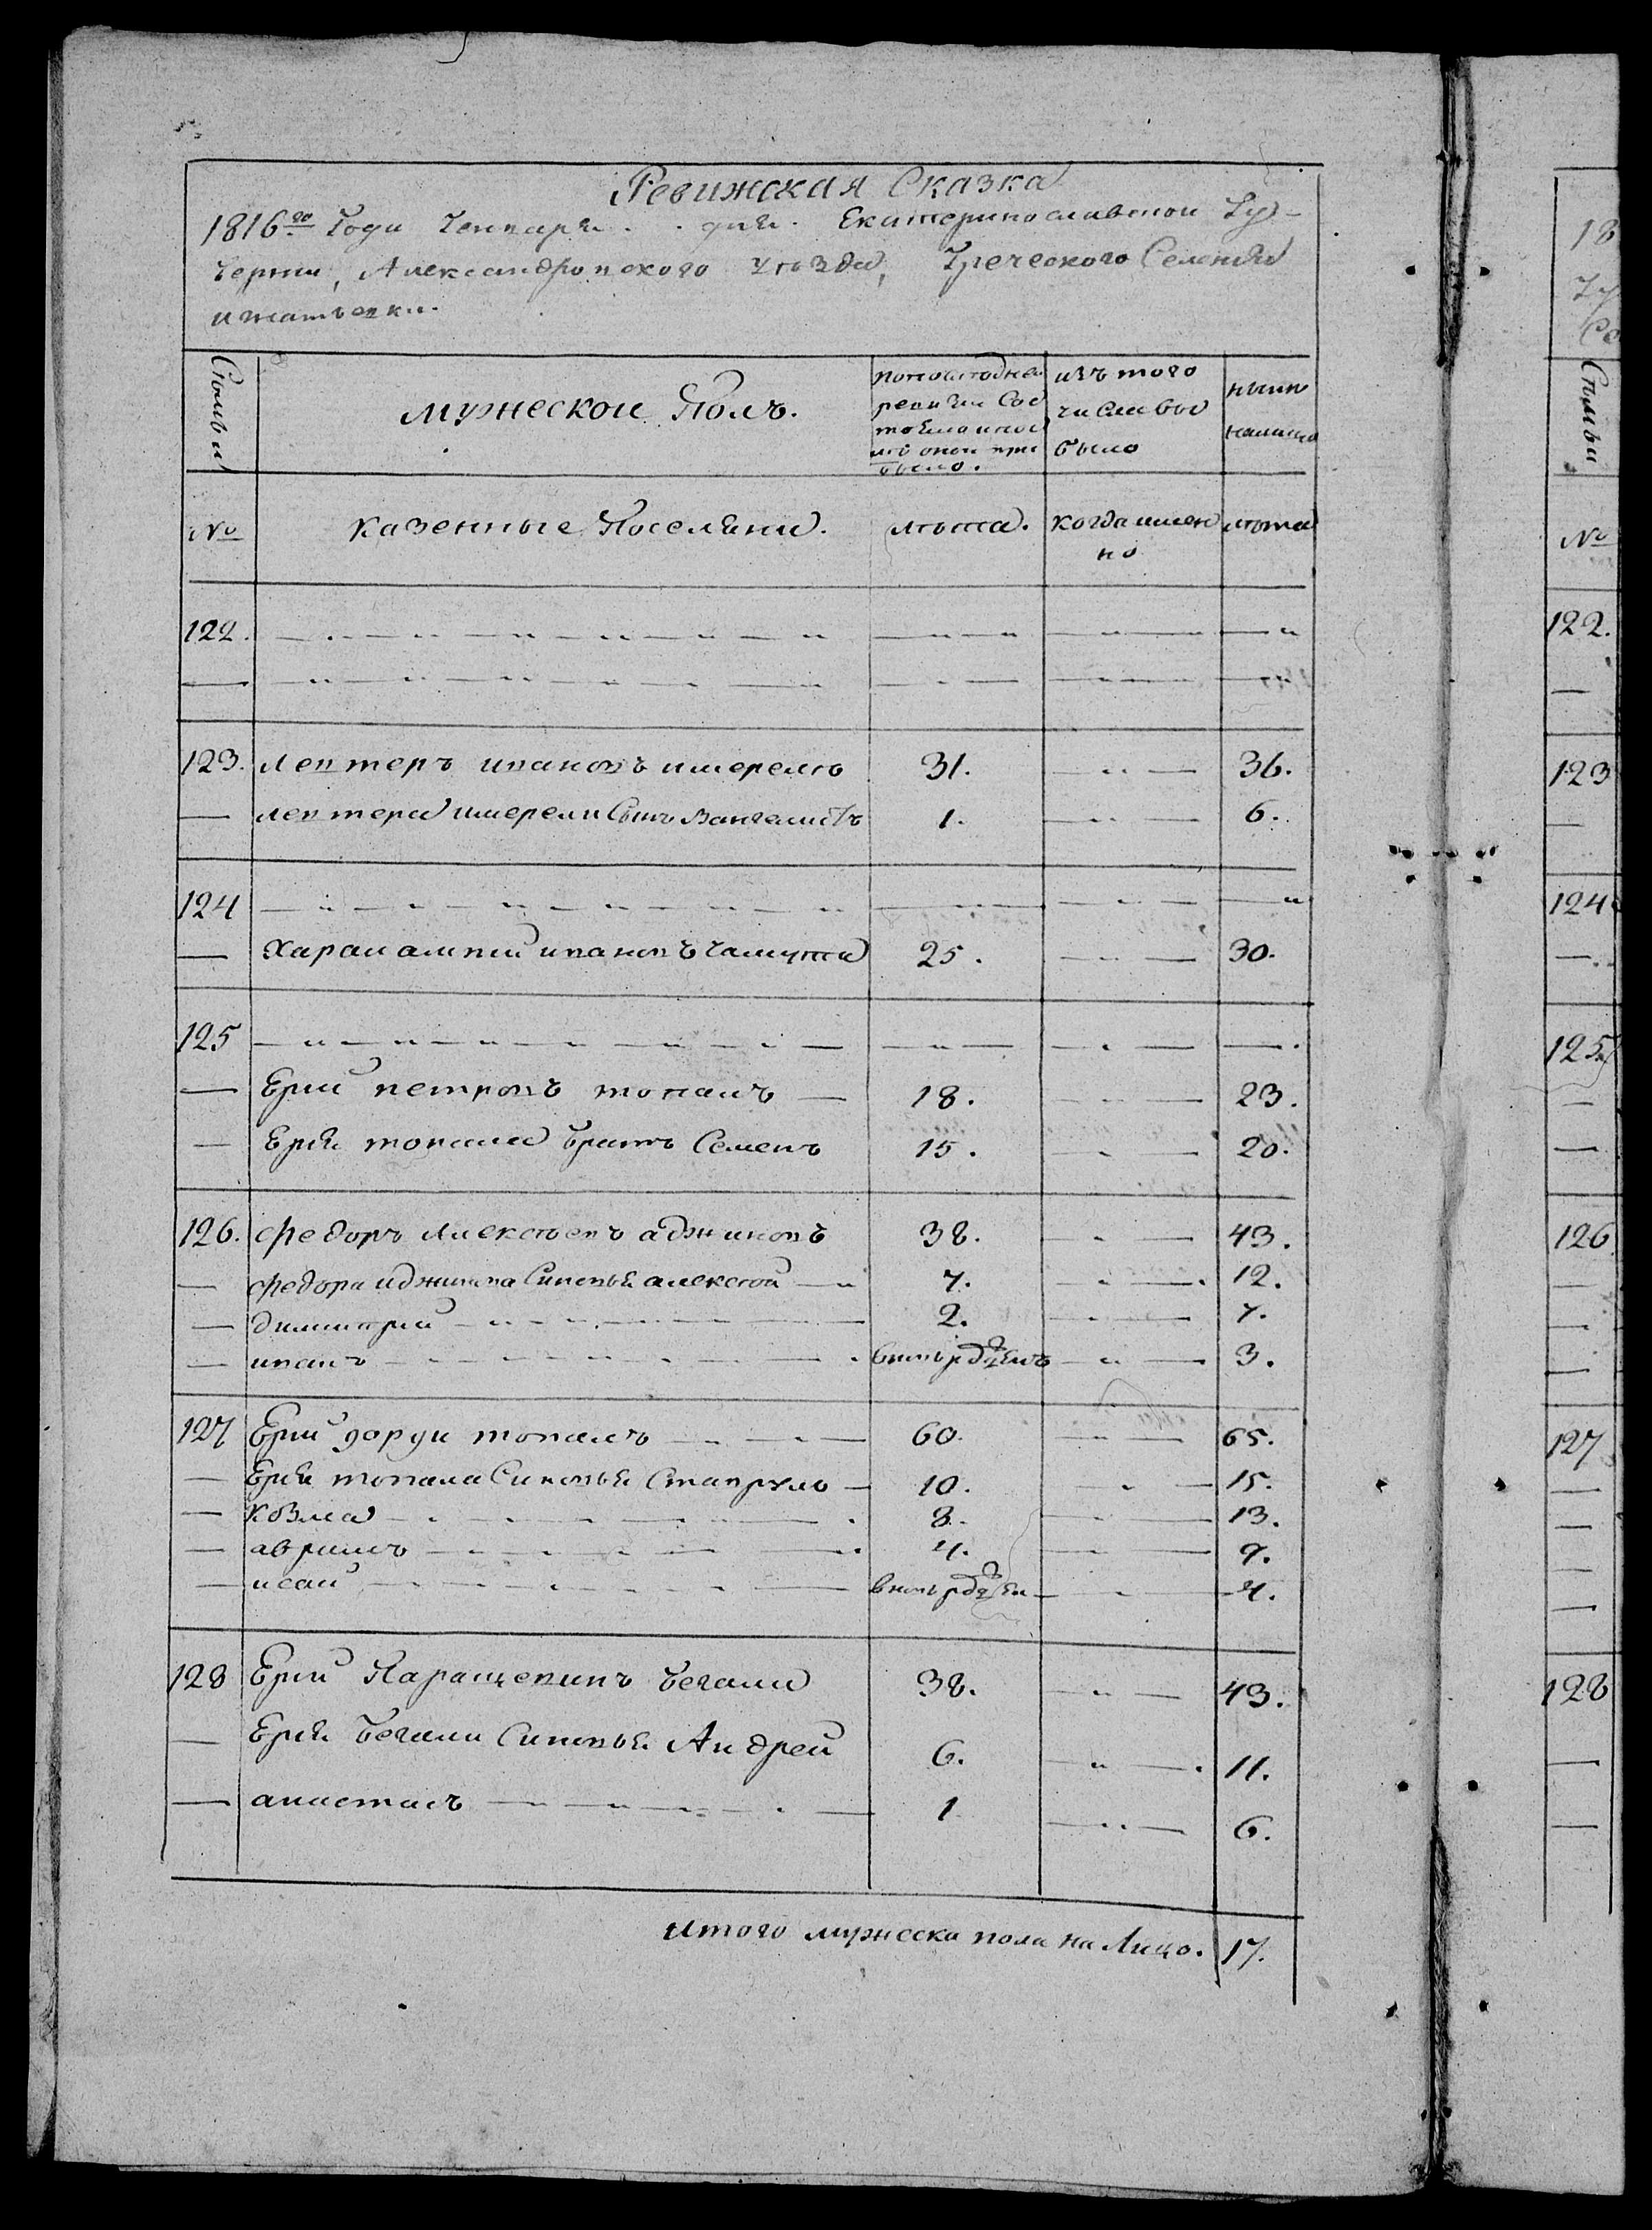 Ревижская Сказка
1816го Года Генваря . . дня. Екатеринославской Гу-
бернии, Александровского уѣзда, Греческого Селения
Игнатьевки.
Семьи
мужескои Полъ.
по последней
ревизии Сос
тояло и после
оной при
было.
изъ того
числа вы
было
ныне
налицо
№
казенные Поселяни.
лѣта.
когда имен
но
лѣта
122.
123. лефтеръ ивановъ имерели 31. 36.
лефтера имерели Сынъ Вангелистъ 1. 6.
124
Харалампий ивановъ Чалухта 25. 30.
125
Ерии петровъ топалъ 18. 23.
Ерия топала братъ Семенъ 15. 20.
126. Федоръ Алексѣевъ аджиновъ 38. 43.
Федора аджинова Синовья алексѣй 7. 12.
димитрий 2. 7.
иванъ вновьрожденъ 3.
127 Ерий топалъ 60. 65.
Ерия топала Синовья Ставруль 10. 15.
Козма 8. 13.
аврамъ 4. 9.
исаи вновьрожден 4.
128 Ерий Паращевинъ Бегали 38. 43.
Ерия Бегали Синовья Андрей 6. 11.
анастасъ 1 6.
Итого мужеска пола на Лицо. 17.
18
Гу
Се
Семьи
№
122.
123
124
125.
126
127
128